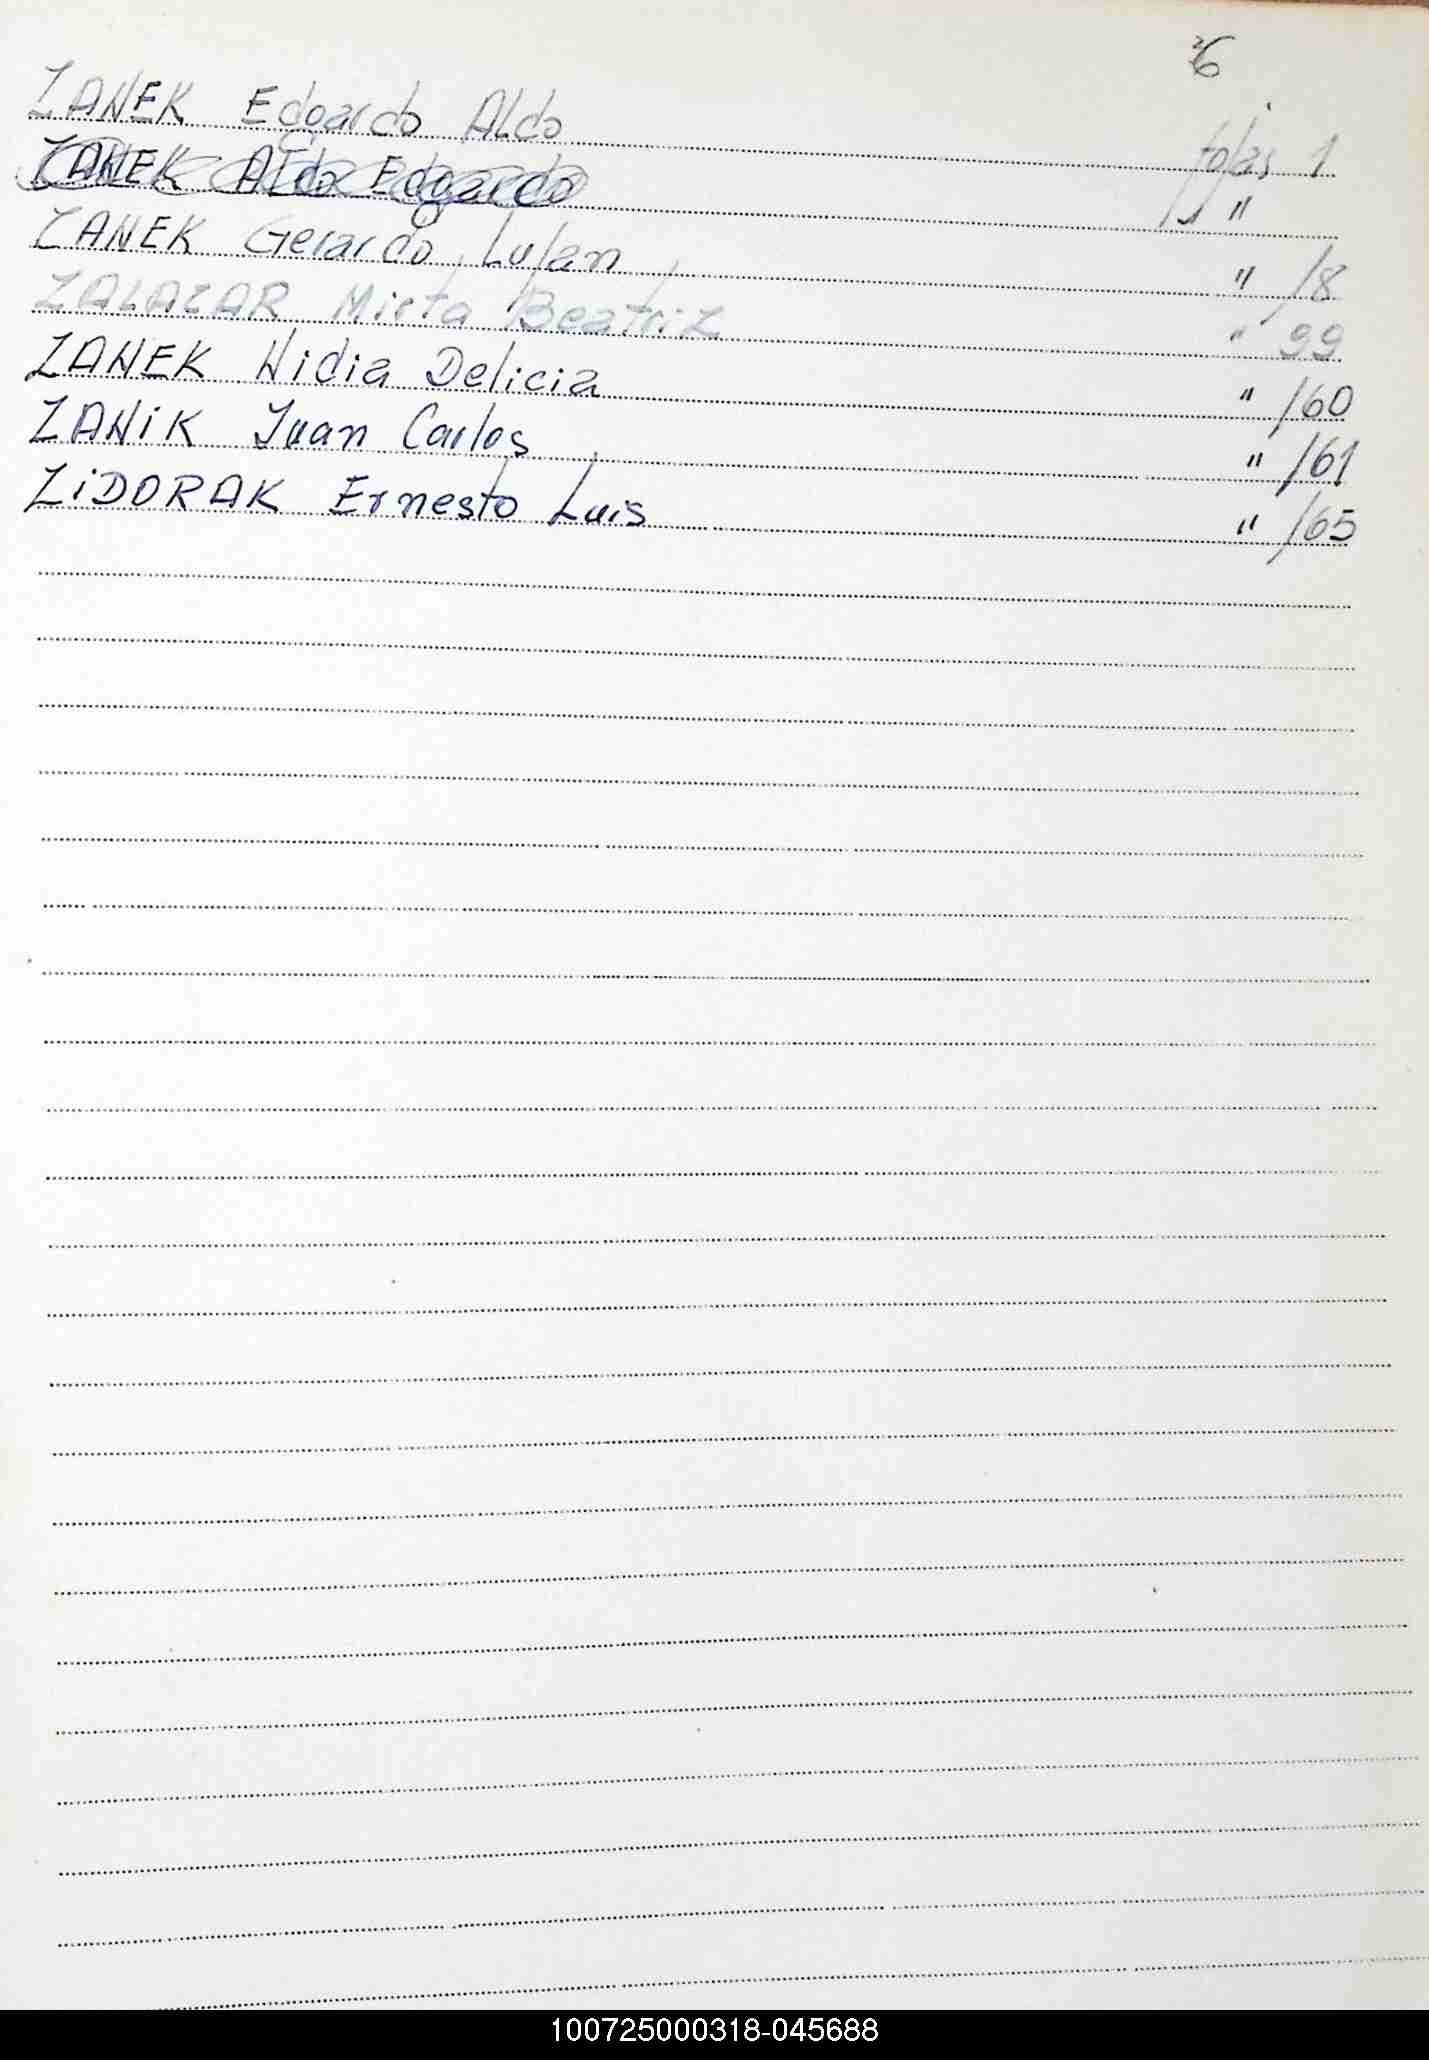 26
ZANEK Edgardo Aldo fojas 1
ZANEK Aldo Edgardo "
ZANEK Gerardo Lujan " 18
ZALAZAR Mirta Beatriz " 99
ZANEK Nidia Delicia " 160
ZANiK Juan Carlos " 161
ZiDORAK Ernesto Luis " 165
100725000318-045688